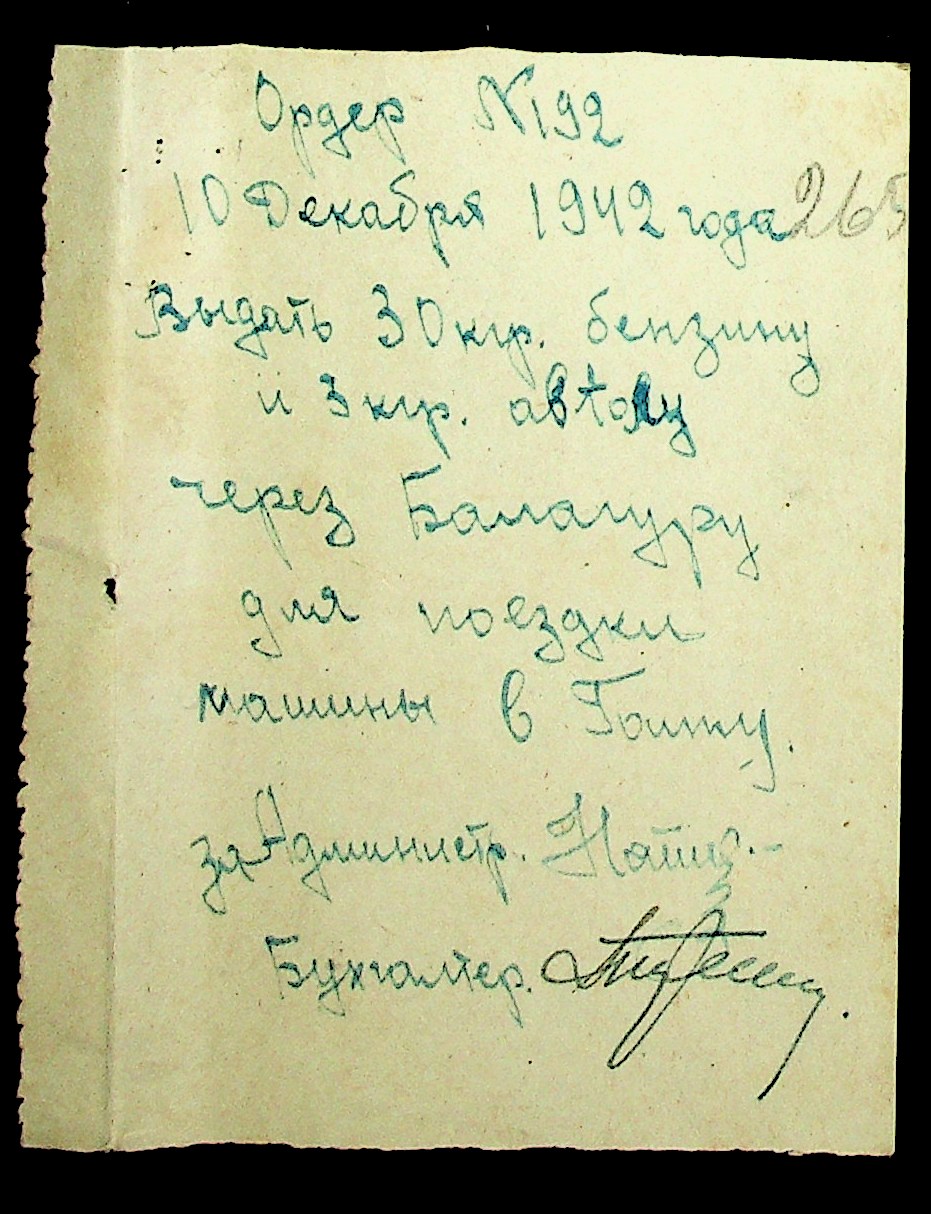 Ордер N192
10 Декабря 1942 года 265
Выдать 30 кгр. бензину
и 3 кгр. автолу
через Балагуру
для поездки
машины в
за Администр.
Бухгалтер.